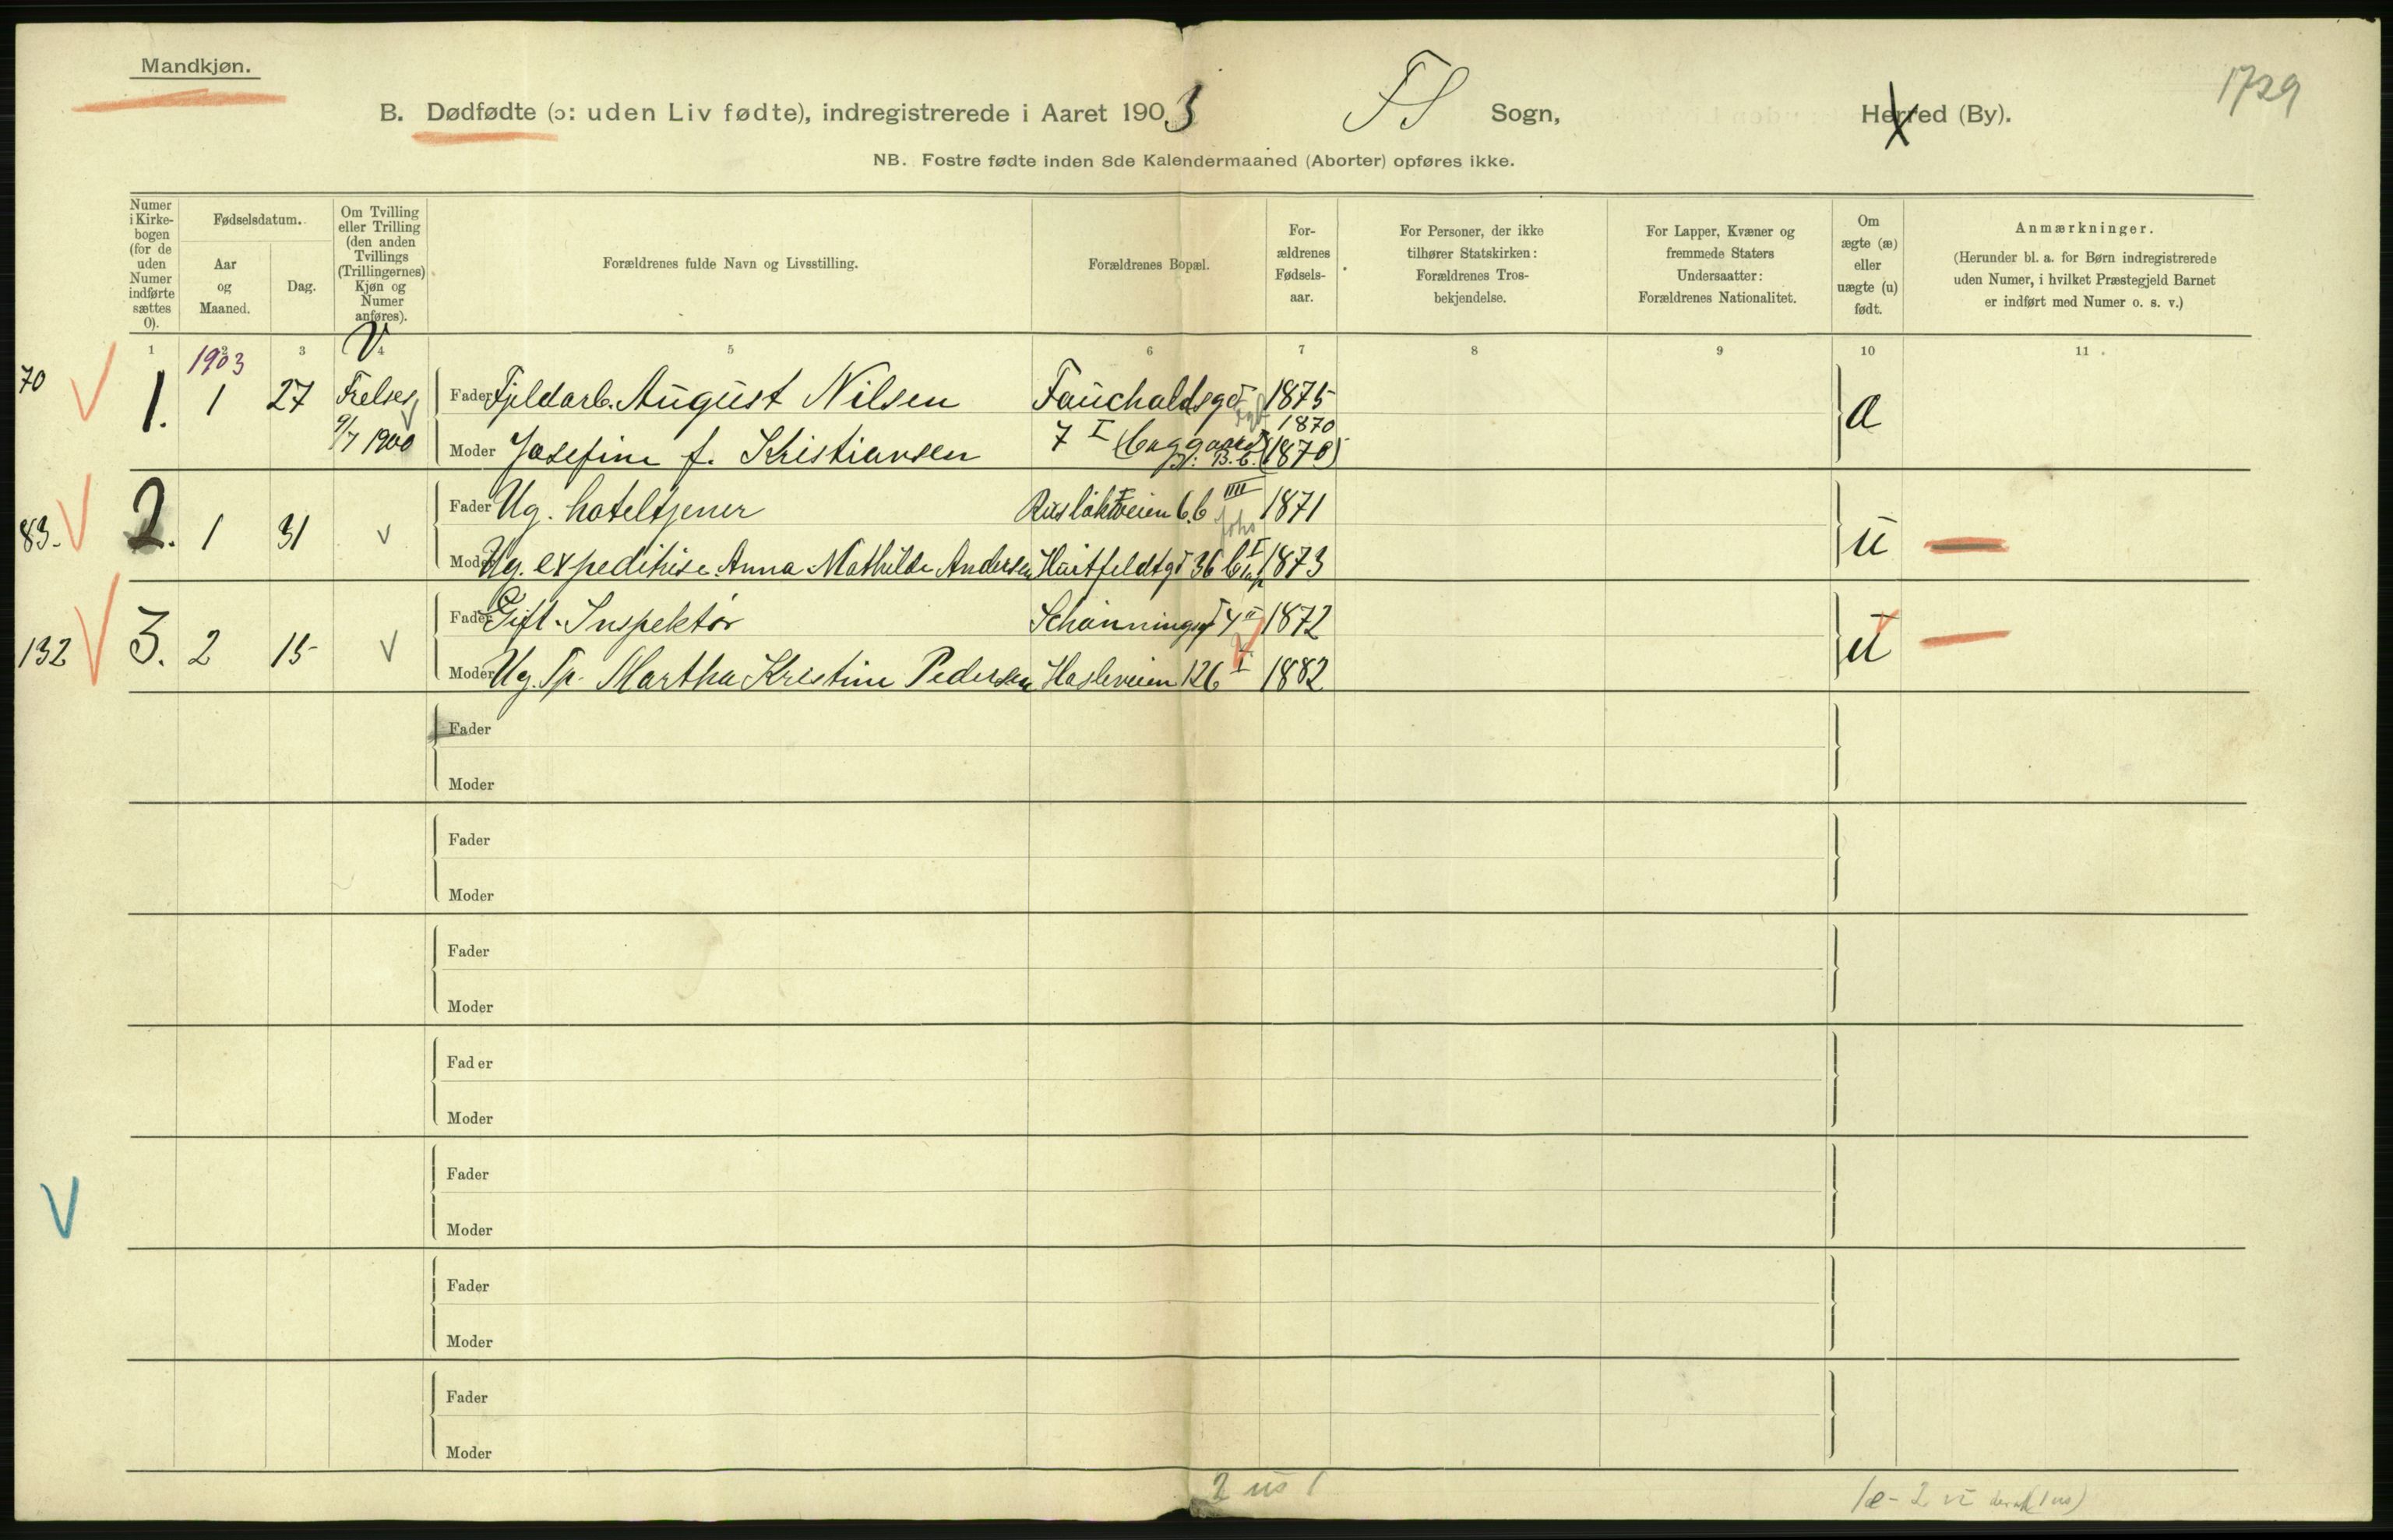 Mandkjøn.
1729
B. Dødfødte (ɔ: uden Liv fødte), indregistrerede i Aaret 1903 FS Sogn, Herred (By).
NB. Fostre fødte inden 8de Kalendermaaned (Aborter) opføres ikke.
Numer i Kirke- bogen (for de uden Numer indførte sættes 0).
Fødselsdatum.
Aar og Maaned.
Dag.
Om Tvilling eller Trilling (den anden Tvillings (Trillingernes) Kjøn og Numer anføres).
Forældrenes fulde Navn og Livsstilling.
Forældrenes Bopæl.
For- ældrenes Fødsels- aar.
For Personer, der ikke tilhører Statskirken: Forældrenes Tros- bekjendelse.
For Lapper, Kvæner og fremmede Staters Undersaatter: Forældrenes Nationalitet.
Om ægte (æ) eller uægte (u) født.
Anmærkninger.
(Herunder bl. a. for Børn indregistrerede uden Numer, i hvilket Præstegjeld Barnet er indført med Numer o. s. v.)
1 2 3 4 5 6 7 8 9 10 11
1903
70 1. 1 27 Frelses Fader Fjeldarb. August Nilsen Fauchaldsgt 1875 æ
1870
9/7 1900 Moder Josefine f. Kristiansen 7 I (1870)
83. 2. 1 31 Fader Ug. hoteltjener Rusløkveien 6 b IIII 1871 u
Moder Ug. expeditrise Anna Mathilde Andersen Huitfeldtgt 36 b I 1873
132 3. 2 15 Fader Gift. Inspektør Schønningsgt 4 II 1872 u
Moder Ug. Tp. Martha Kristine Pedersen Hasleveien 126 I 1882
Fader
Moder
Fader
Moder
Fader
Moder
Fader
Moder
Fader
Moder
Fader
Moder
Fader
Moder